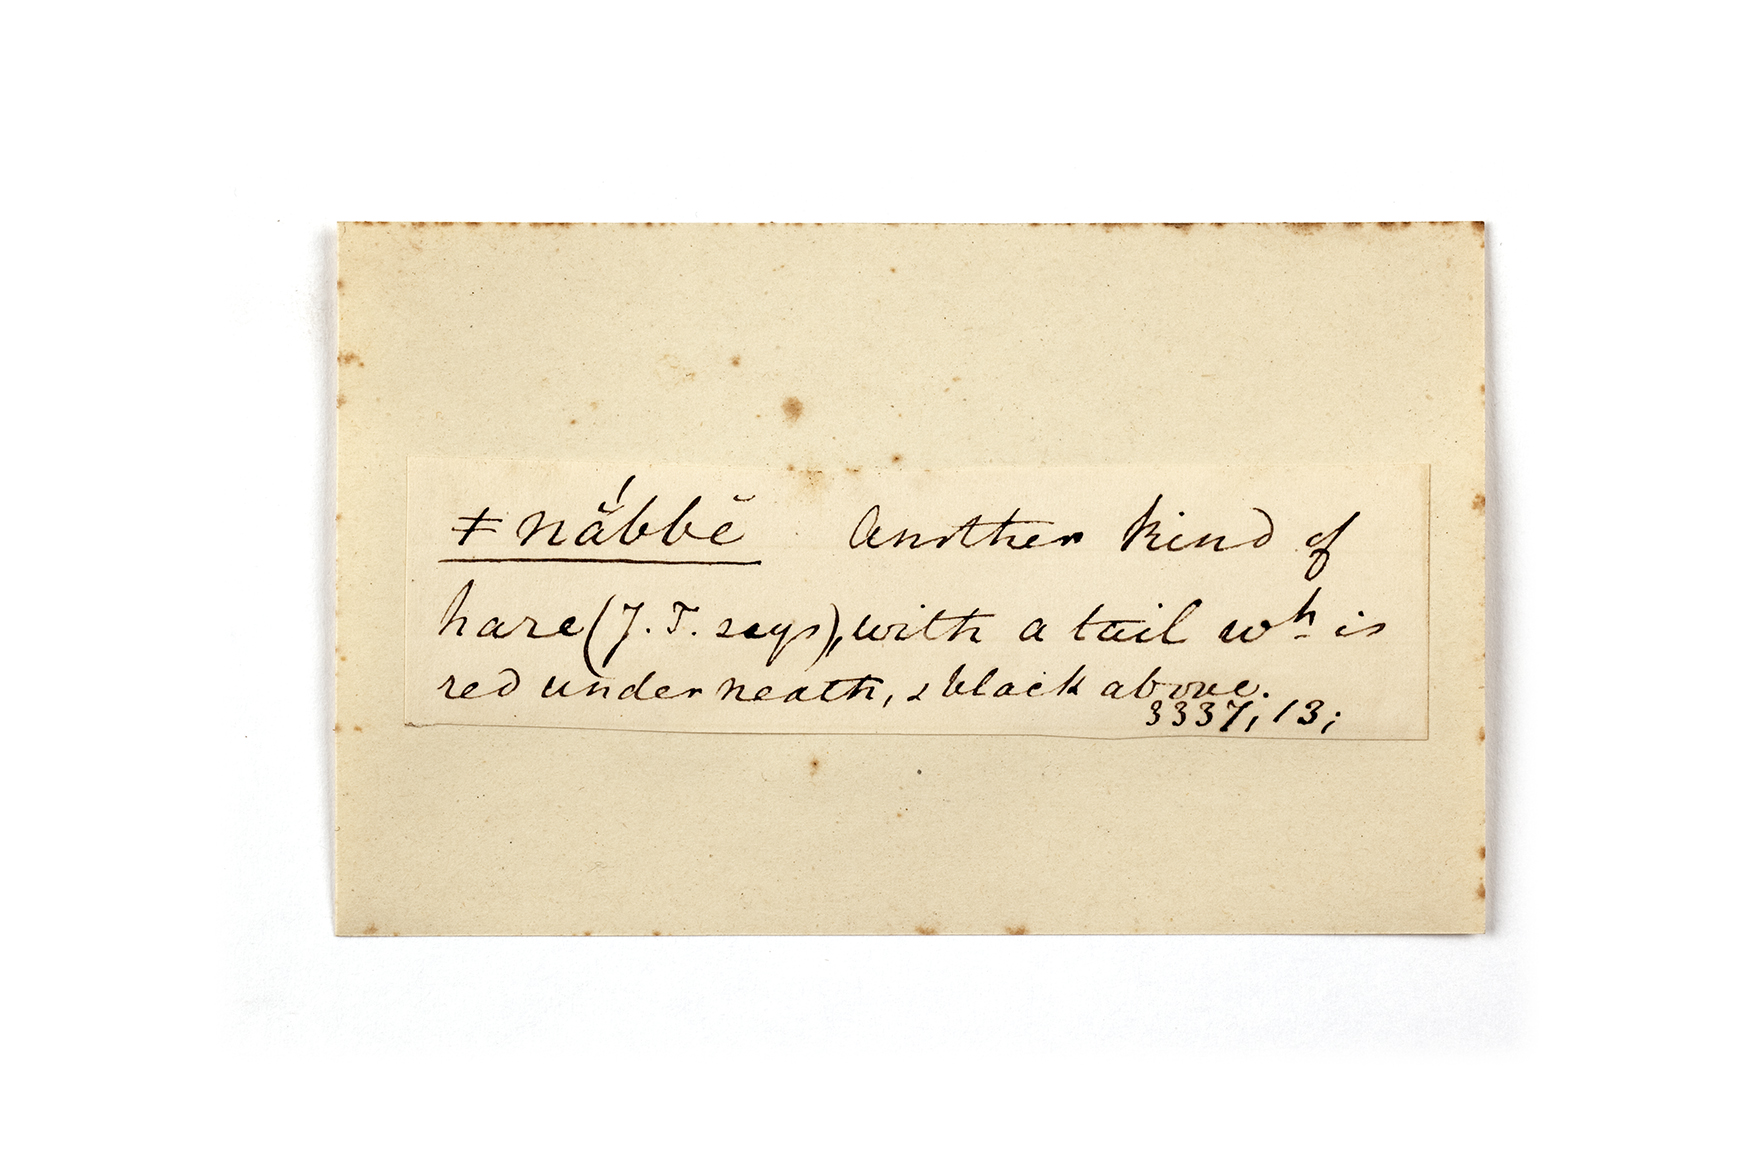 ǂnắbbĕ Another kind of
hare (J.T. says), with a tail wʰ is
red underneath, & black above.
3337, 13;